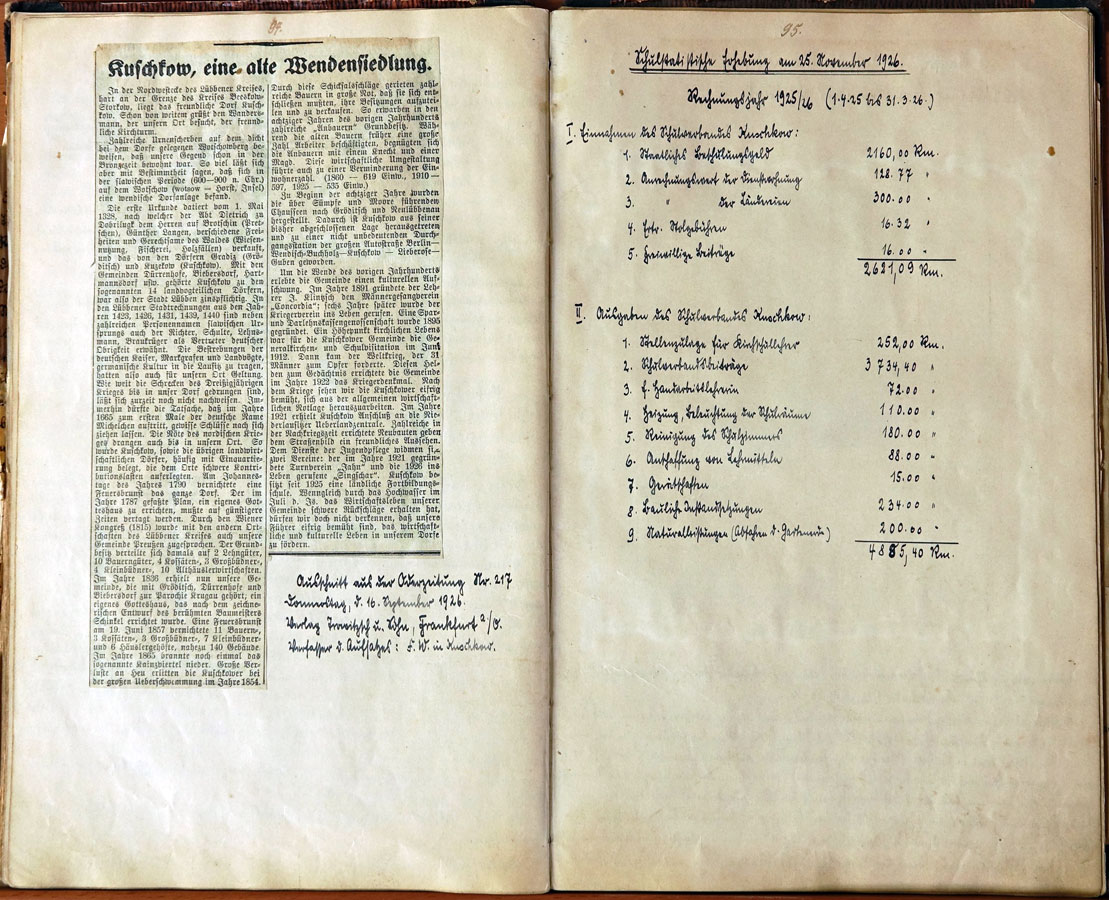 94.
Kuschkow, eine alte Wendensiedlung.
In der Nordwestecke des Lübbener Kreises,
hart an der Grenze des Kreises Beeskow-
Storkow, liegt das freundliche Dorf Kusch-
kow. Schon von weitem grüßt den Wanders-
mann, der unsern Ort besucht, der freund-
liche Kirchturm.
Zahlreiche Urnenscherben auf dem dicht
bei dem Dorfe gelegenen Wutschemberg be-
weisen, daß unsere Gegend schon in der
Bronzezeit bewohnt war. So viel läßt sich
aber mit Bestimmtheit sagen, daß sich in
der slawischen Periode (600—900 n. Chr.)
auf dem Wotschow (wotsow = Horst, Insel)
eine wendische Dorfanlage befand.
Die erste Urkunde datiert vom 1. Mai
1328, nach welcher der Abt Dietrich zu
Dobrilugk dem Herren auf Wrotschin (Pret-
schen), Günther Langen, verschiedene Frei-
heiten und Gerechtsame des Waldes (Wiesen-
nutzung, Fischerei, Holzfällen) verkauft,
und das von den Dörfern Gradiz (Grö-
ditsch) und Kuzekow (Kuschkow). Mit den
Gemeinden Dürrenhofe, Biebersdorf, Hart-
mannsdorf usw. gehörte Kuschkow zu den
sogenannten 14 landvogteilichen Dörfern,
war also der Stadt Lübben zinspflichtig. In
den Lübbener Stadtrechnungen aus den Jah-
ren 1423, 1426, 1431, 1439, 1440 sind neben
zahlreichen Personennamen slawischen Ur-
sprungs auch der Richter, Schulte, Lehns-
mann, Braukrüger als Vertreter deutscher
Obrigkeit erwähnt. Die Bestrebungen der
deutschen Kaiser, Markgrafen und Landvögte,
germanische Kultur in die Lausitz zu tragen,
hatten also auch für unsern Ort Geltung.
Wie weit die Schrecken des Dreißigjährigen
Krieges bis in unser Dorf gedrungen sind,
läßt sich zurzeit noch nicht nachweisen. Im-
merhin dürfte die Tatsache, daß im Jahre
1665 zum ersten Male der deutsche Name
Michelchen auftritt, gewisse Schlüsse nach sich
ziehen lassen. Die Nöte des nordischen Krie-
ges drangen auch bis in unsern Ort. So
wurde Kuschkow, sowie die übrigen landwirt-
schaftlichen Dörfer, häufig mit Einquartie-
rung belegt, die dem Orte schwere Kontri-
butionslasten auferlegten. Am Johannes-
tage des Jahres 1790 vernichtete eine
Feuersbrunst das ganze Dorf. Der im
Jahre 1787 gefaßte Plan, ein eigenes Got-
teshaus zu errichten, mußte auf günstigere
Zeiten vertagt werden. Durch den Wiener
Kongreß (1815) wurde mit den andern Ort-
schaften des Lübbener Kreises auch unsere
Gemeinde Preußen zugesprochen. Der Grund-
besitz verteilte sich damals auf 2 Lehngüter,
10 Bauerngüter, 4 Kossäten-, 3 Großbüdner-,
4 Kleinbüdner-, 10 Althäuslerwirtschaften.
Im Jahre 1836 erhielt nun unsere Ge-
meinde, die mit Gröditsch, Dürrenhofe und
Biebersdorf zur Parochie Krugau gehört, ein
eigenes Gotteshaus, das nach dem zeichne-
rischen Entwurf des berühmten Baumeisters
Schinkel errichtet wurde. Eine Feuersbrunst
am 19. Juni 1857 vernichtete 11 Bauern-,
3 Kossäten-, 3 Großbüdner-, 7 Kleinbüdner-
und 6 Häuslergehöfte, nahezu 140 Gebäude.
Im Jahre 1865 brannte noch einmal das
sogenannte Kainzviertel nieder. Große Ver-
luste an Heu erlitten die Kuschkower bei
der großen Ueberschwemmung im Jahre 1854.
Durch diese Schicksalsschläge gerieten zahl-
reiche Bauern in große Not, daß sie sich ent-
schließen mußten, ihre Besitzungen aufzutei-
len und zu verkaufen. So erwarben in den
achtziger Jahren des vorigen Jahrhunderts
zahlreiche „Anbauern" Grundbesitz. Wäh-
rend die alten Bauern früher eine große
Zahl Arbeiter beschäftigten, begnügten sich
die Anbauern mit einem Knecht und einer
Magd. Diese wirtschaftliche Umgestaltung
führte auch zu einer Verminderung der Ein-
wohnerzahl. (1860 — 619 Einw., 1910 —
597, 1925 — 535 Einw.)
Zu Beginn der achtziger Jahre wurden
die über Sümpfe und Moore führenden
Chausseen nach Gröditsch und Neulübbenau
hergestellt. Dadurch ist Kuschkow aus seiner
bisher abgeschlossenen Lage herausgetreten
und zu einer nicht unbedeutenden Durch-
gangsstation der großen Autostraße Berlin—
Wendisch-Buchholz—Kuschkow — Lieberose—
Guben geworden.
Um die Wende des vorigen Jahrhunderts
erlebte die Gemeinde einen kulturellen Auf-
schwung. Im Jahre 1891 gründete der Leh-
rer J. Klintzsch den Männergesangverein
„Concordia"; sechs Jahre später wurde der
Kriegerverein ins Leben gerufen. Eine Spar-
und Darlehnskassengenossenschaft wurde 1895
gegründet. Ein Höhepunkt kirchlichen Lebens
war für die Kuschkower Gemeinde die Ge-
neralkirchen- und Schulvisitation im Juni
1912. Dann kam der Weltkrieg, der 31
Männer zum Opfer forderte. Diesen Hel-
den zum Gedächtnis errichtete die Gemeinde
im Jahre 1922 das Kriegerdenkmal. Nach
dem Kriege sehen wir die Kuschkower eifrig
bemüht, sich aus der allgemeinen wirtschaft-
lichen Notlage herauszuarbeiten. Im Jahre
1921 erhielt Kuschkow Anschluß an die Nie-
derlausitzer Ueberlandzentrale. Zahlreiche in
der Nachkriegszeit errichtete Neubauten geben
dem Straßenbild ein freundliches Aussehen.
Dem Dienste der Jugendpflege widmen sich
zwei Vereine: der im Jahre 1921 gegrün-
dete Turnverein „Jahn" und die 1926 ins
Leben gerufene „Singschar". Kuschkow be-
sitzt seit 1925 eine ländliche Fortbildungs-
schule. Wenngleich durch das Hochwasser im
Juli d. Js. das Wirtschaftsleben unserer
Gemeinde schwere Rückschläge erhalten hat,
dürfen wir doch nicht verkennen, daß unsere
Führer eifrig bemüht sind, das wirtschaft-
liche und kulturelle Leben in unserem Dorfe
zu fördern.
Ausschnitt aus der Oderzeitung Nr. 217
Donnerstag, d. 16. September 1926.
Verlag Trowitzsch u. Sohn, Frankfurt a/O.
Verfasser d. Aufsatzes: F. W. in Kuschkow.
95.
Schulstatistische Erhebung am 25. November 1926.
Rechnungsjahr 1925/26 (1.4.25 bis 31.3.26.)
I. Einnahmen des Schulverbandes Kuschkow:
1. Staatliches Beschulungsgeld 2160,00 Rm.
2. Anrechnungswert der Dienstwohnung 128.77 "
3. " der Ländereien 300.00 "
4. Extr. Stolgebühren 16.32 "
5. Freiwillige Beiträge 16.00 "
2621,09 Rm.
II. Ausgaben des Schulverbandes Kuschkow:
1. Stellenzulage für Kirchschullehrer 252,00 Rm.
2. Schulverbandsbeiträge 3734,40 "
3. f. Handarbeitlehrerin 72.00 "
4. Heizung, Beleuchtung der Schulräume 110.00 "
5. Reinigung des Schulzimmers 180.00 "
6. Anschaffung von Lehrmitteln 88.00 "
7. Gerätschaften 15.00 "
8. Bauliche Instandsetzungen 234.00 "
9. Naturalleistungen (Abfahren d. Gartenerde) 200.00 "
4885,40 Rm.